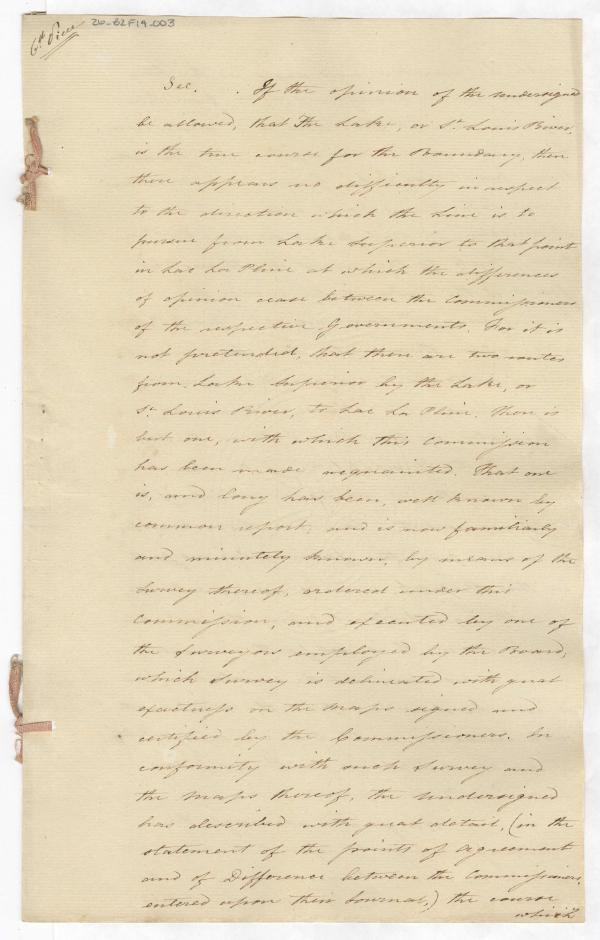 6th Piece
26-62F19-003
Sec. . If the opinion of the undersigned
be allowed, that The Lake, or St. Louis River,
is the true course for the Boundary, then
there appears no difficulty in respect
to the direction which the Line is to
pursue from Lake Superior to that point
in Lac La Pluie at which the differences
of opinion cease between the Commissioners
of the respective Governments. For it is
not pretended, that there are two routes
from Lake Superior by the Lake, or
St. Louis River, to Lac La Pluie. there is
but one, with which this Commission
has been made acquainted. That one
is, and long has been, well known by
common report; and is now familiarly
and minutely known, by means of the
Survey thereof, ordered under this
Commission, and executed by one of
the Surveyors employed by the Board,
which Survey is delineated with great
exactness on the maps signed and
certified by the Commissioners. In
conformity with such Survey and
the maps thereof, the undersigned
has described with great detail, (in the
statement of the points of agreement
and of Difference between the Commissioners,
entered upon their Journal,) the course
which